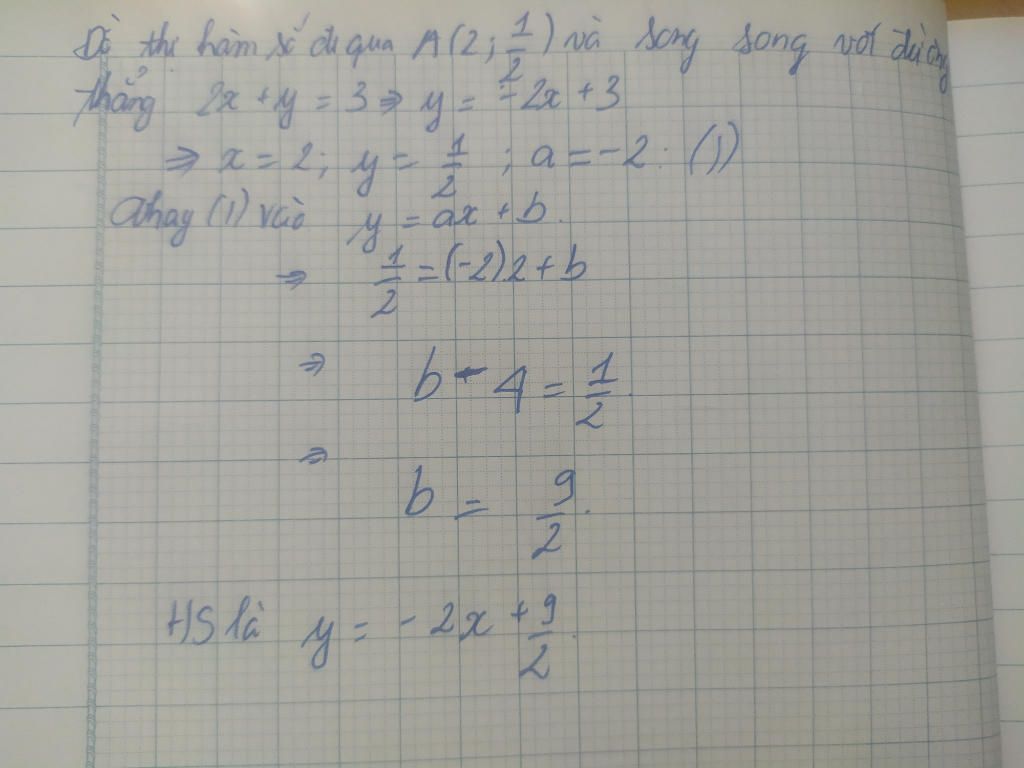 Đồ thị hàm số đi qua A(2; 1/2) và song song với đường
thẳng 2x + y = 3 => y = -2x + 3
=> x = 2; y = 1/2 ; a = -2. (1)
Thay (1) vào y = ax + b.
=> 1/2 = (-2)2 + b
=> b - 4 = 1/2.
=> b = 9/2.
HS là y = -2x + 9/2.